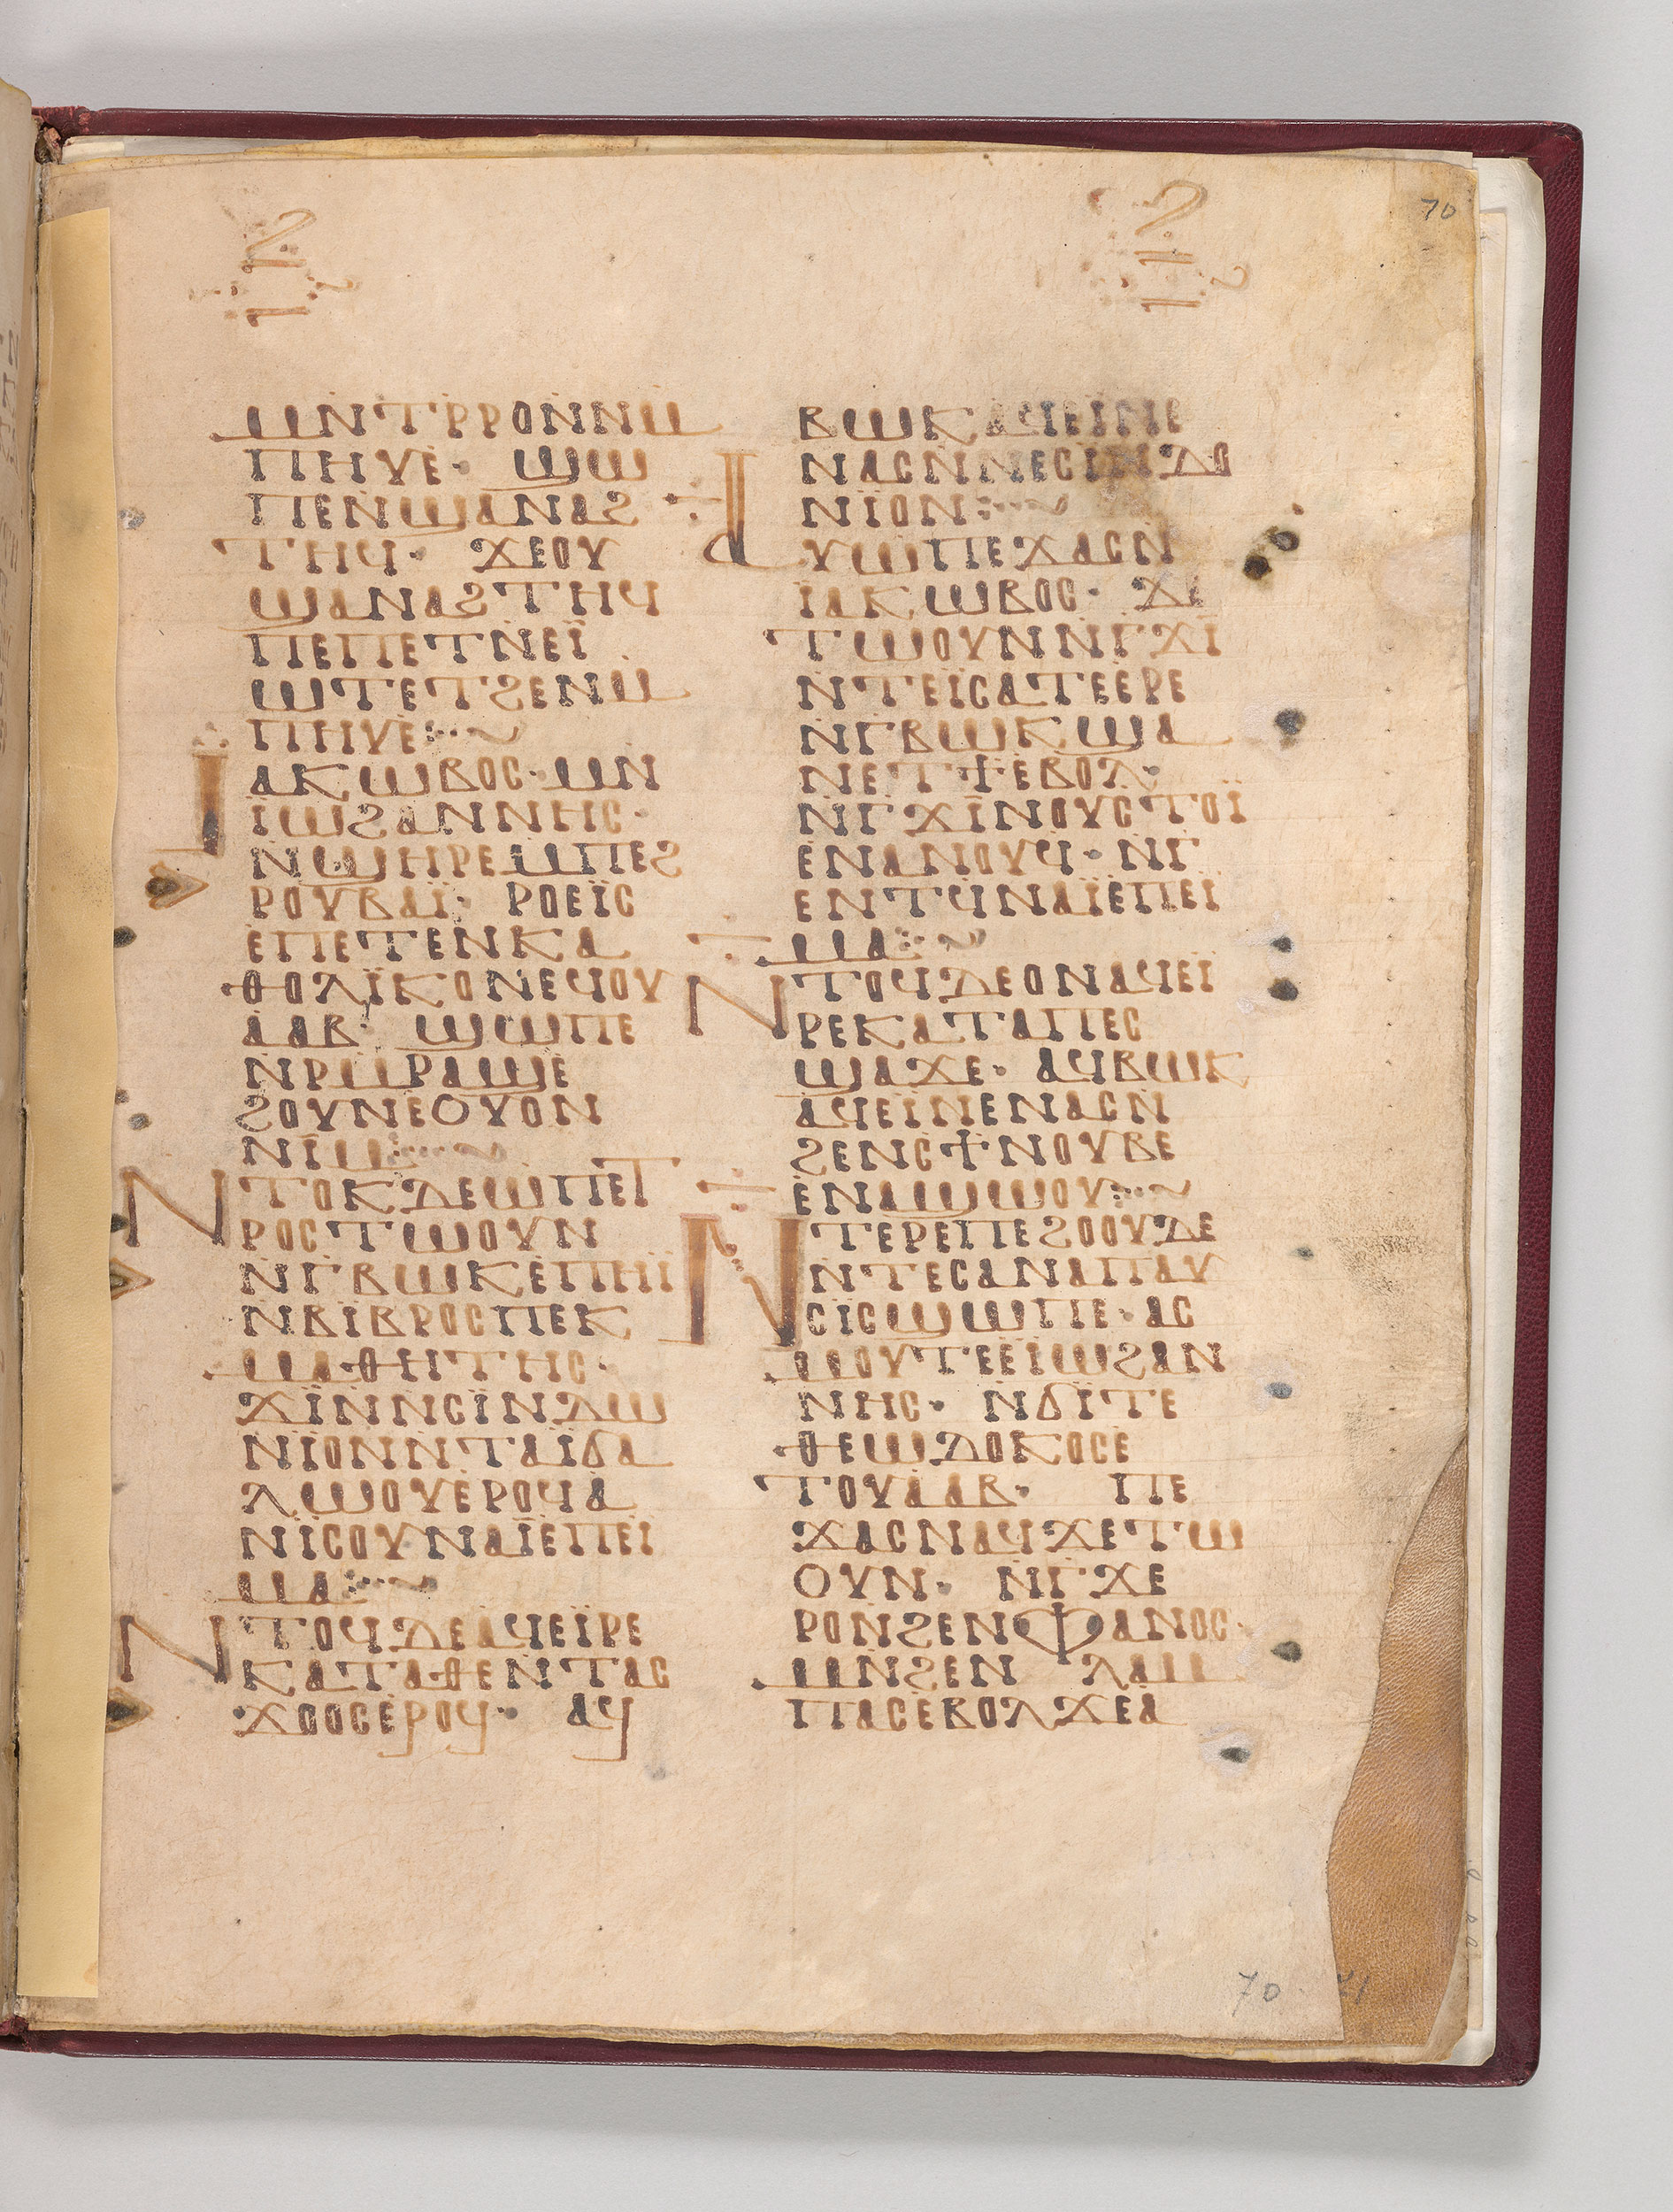 70
ⲙⲛⲧⲣⲣⲟⲛⲛⲙ
ⲡⲏⲩⲉ· ϣⲱ
ⲡⲉⲛϣⲁⲛⲁϩ
ⲧⲏϥ· ϫⲉⲟⲩ
ϣⲁⲛⲁϩⲧⲏϥ
ⲡⲉⲡⲉⲧⲛⲉⲓ̈
ⲱⲧⲉⲧϩⲉⲛⲙ
ⲡⲏⲩⲉ:
ⲓⲁⲕⲱⲃⲟⲥ·ⲙⲛ
ⲓ̈ⲱϩⲁⲛⲛⲏⲥ·
ⲛϣⲏⲣⲉⲙⲡⲉϩ
ⲣⲟⲩⲃⲁⲓ̈· ⲣⲟⲉⲓ̈ⲥ
ⲉⲡⲉⲧⲉⲛⲕⲁ
ⲑⲟⲗⲓ̈ⲕⲟⲛⲉϥⲟⲩ
ⲁⲁⲃ· ϣⲱⲡⲉ
ⲛⲣⲙⲣⲁϣⲉ
ϩⲟⲩⲛⲉⲟⲩⲟⲛ
ⲛⲓⲙ:
ⲛⲧⲟⲕⲇⲉⲱⲡⲉⲧ
ⲣⲟⲥⲧⲱⲟⲩⲛ
ⲛⲅⲃⲱⲕⲉⲡⲏⲓ̈
ⲛⲃⲓ̈ⲃⲣⲟⲥⲡⲉⲕ
ⲙⲁⲑⲏⲧⲏⲥ·
ϫⲓ̈ⲛⲛⲥⲓ̈ⲛⲇⲱ
ⲛⲓ̈ⲟⲛⲛⲧⲁⲓ̈ϭⲁ
ⲗⲱⲟⲩⲉⲣⲟϥⲁ
ⲛⲓ̈ⲥⲟⲩⲛⲁⲓ̈ⲉⲡⲉⲓ
ⲙⲁ:
ⲛⲧⲟϥⲇⲉⲁϥⲉⲓ̈ⲣⲉ
ⲕⲁⲧⲁⲑⲉⲛⲧⲁⲥ
ϫⲟⲟⲥⲉⲣⲟϥ· ⲁϥ
ⲃⲱⲕⲁϥⲉⲓⲛⲉ
ⲛⲁⲥⲛⲛⲉⲥⲓⲛⲇⲟ
ⲛⲓ̈ⲟⲛ:
ⲁⲩⲱⲡⲉϫⲁⲥⲛ
ⲓ̈ⲁⲕⲱⲃⲟⲥ· ϫⲉ
ⲧⲱⲟⲩⲛⲛⲅϫⲓ̈
ⲛⲧⲉⲓ̈ⲥⲁⲧⲉⲉⲣⲉ
ⲛⲅⲃⲱⲕϣⲁ
ⲛⲉⲧϯⲉⲃⲟⲗ·
ⲛⲅϫⲓ̈ⲛⲟⲩⲥⲧⲟⲓ̈
ⲉⲛⲁⲛⲟⲩϥ·ⲛⲅ
ⲉⲛⲧϥⲛⲁⲓ̈ⲉⲡⲉⲓ̈
ⲙⲁ:
ⲛⲧⲟϥⲇⲉⲟⲛⲁϥⲉⲓ̈
ⲣⲉⲕⲁⲧⲁⲡⲉⲥ
ϣⲁϫⲉ· ⲁϥⲃⲱⲕ
ⲁϥⲉⲓ̈ⲛⲉⲛⲁⲥⲛ
ϩⲉⲛⲥϯⲛⲟⲩⲃⲉ
ⲉⲛⲁϣⲱⲟⲩ:
ⲛⲧⲉⲣⲉⲡⲉϩⲟⲟⲩⲇⲉ
ⲛⲧⲉⲥⲁⲛⲁⲡⲁⲩ
ⲥⲓ̈ⲥϣⲱⲡⲉ·ⲁⲥ
ⲙⲟⲩⲧⲉⲉⲓ̈ⲱϩⲁⲛ
ⲛⲏⲥ· ⲛϭⲓ̈ⲧⲉ
ⲑⲉⲱⲇⲟⲕⲟⲥⲉ
ⲧⲟⲩⲁⲁⲃ· ⲡⲉ
ϫⲁⲥⲛⲁϥϫⲉⲧⲱ
ⲟⲩⲛ· ⲛⲅϫⲉ
ⲣⲟⲛϩⲉⲛⲫⲁⲛⲟⲥ·
ⲙⲛϩⲉⲛ ⲗⲁⲙ
ⲡⲁⲥⲉⲃⲟⲗϫⲉⲁ
70